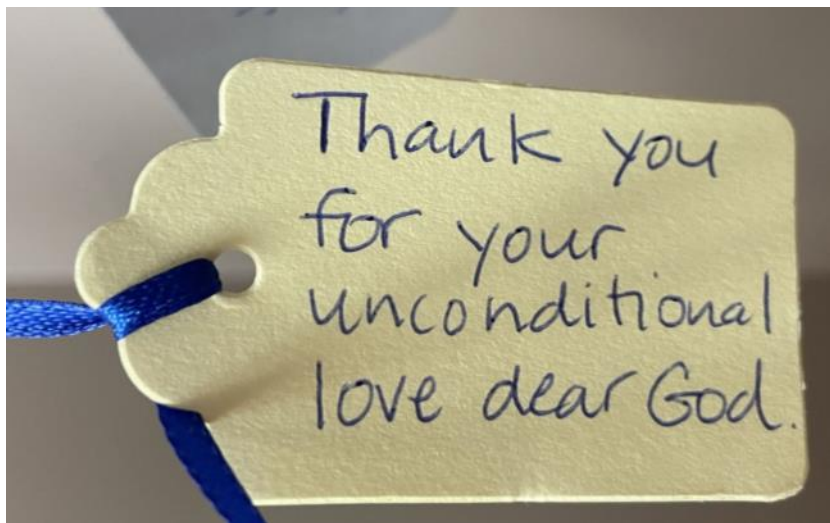 Thank you
for your
unconditional
love dear God.